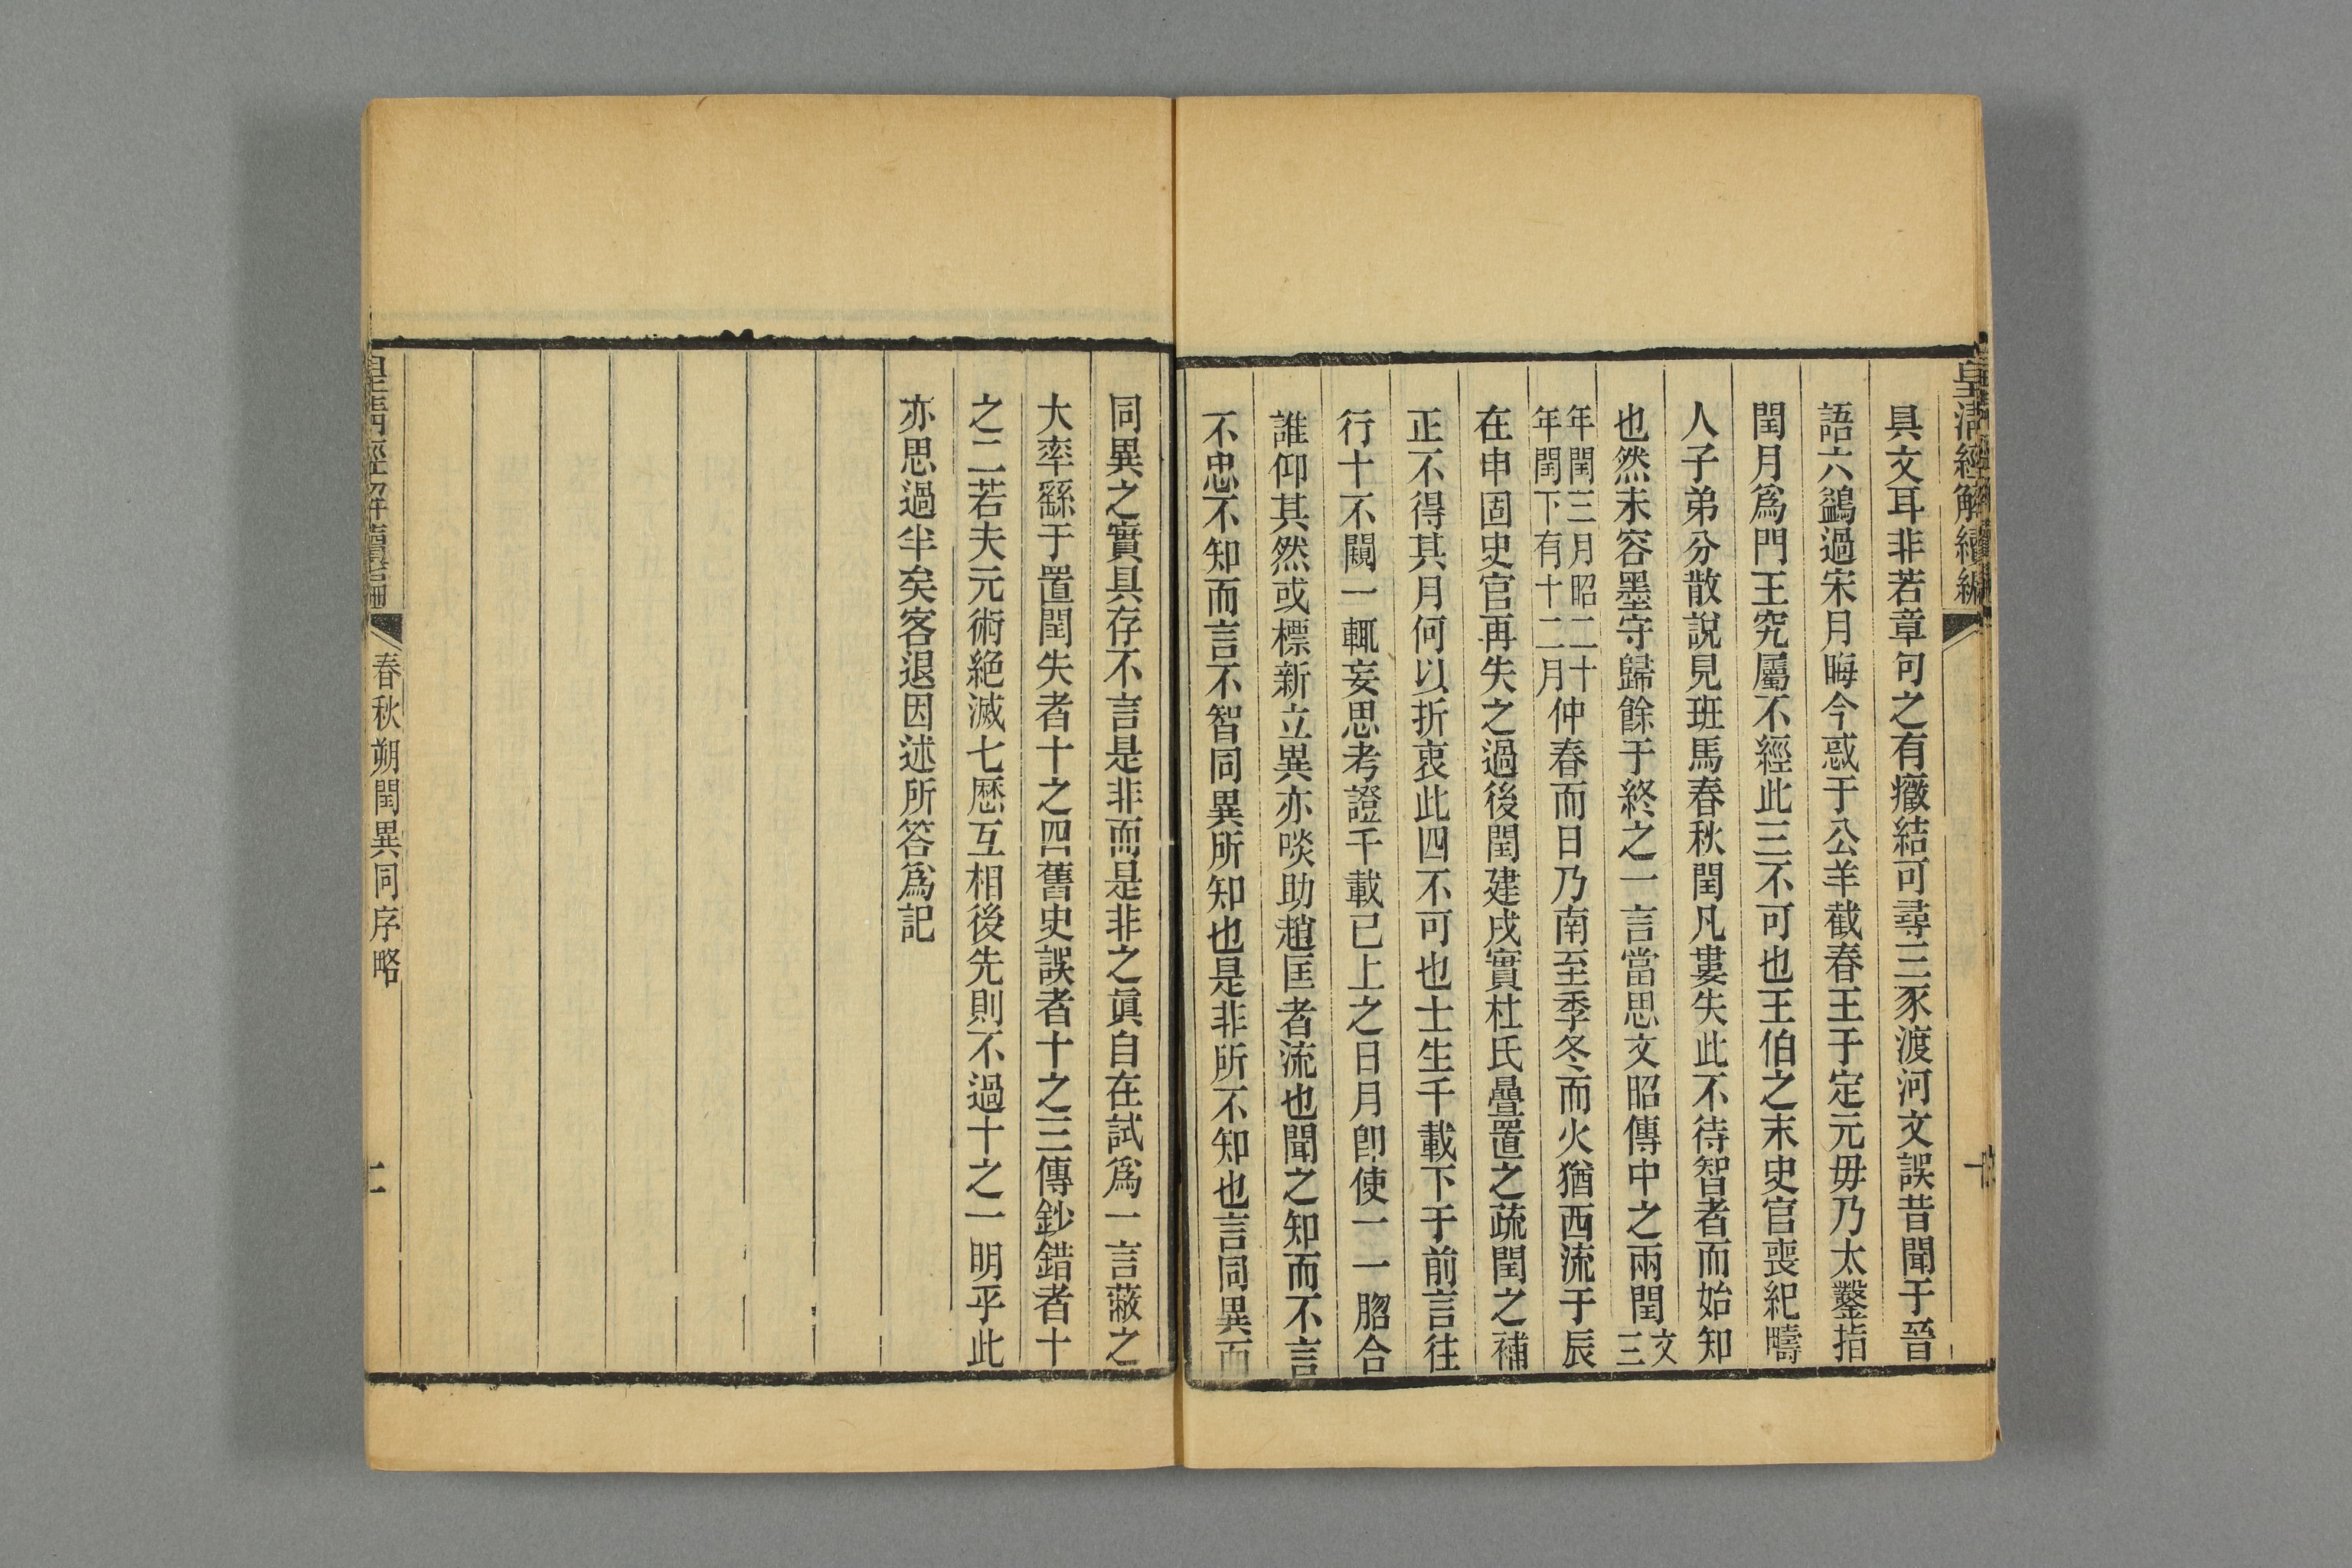 皇清經解續編
具文耳非若章句之有癥結可尋三豕渡河文誤昔聞于晉
語六鷁過宋月晦今惑于公羊截春王于定元毋乃太鑿指
閏月爲門王究屬不經此三不可也王伯之末史官喪紀疇
人子弟分散說見班馬春秋閏凡婁失此不待智者而始知
也然未容墨守歸餘于終之一言當思文昭傳中之兩閏文三
年閏三月昭二十年閏下有十二月仲春而日乃南至季冬而火猶西流于辰
在申固史官再失之過後閏建戌實杜氏疊置之疏閏之補
正不得其月何以折衷此四不可也士生千載下于前言往
行十不闚一輒妄思考證千載已上之日月卽使一一脗合
誰仰其然或標新立異亦啖助趙匡者流也聞之知而不言
不忠不知而言不智同異所知也是非所不知也言同異而
同異之實具存不言是非而是非之眞自在試爲一言蔽之
大率繇于置閏失者十之四舊史誤者十之三傳鈔錯者十
之二若夫元術絕滅七厯互相後先則不過十之一明乎此
亦思過半矣客退因述所答爲記
皇清經解續編
春秋朔閏異同序略
二